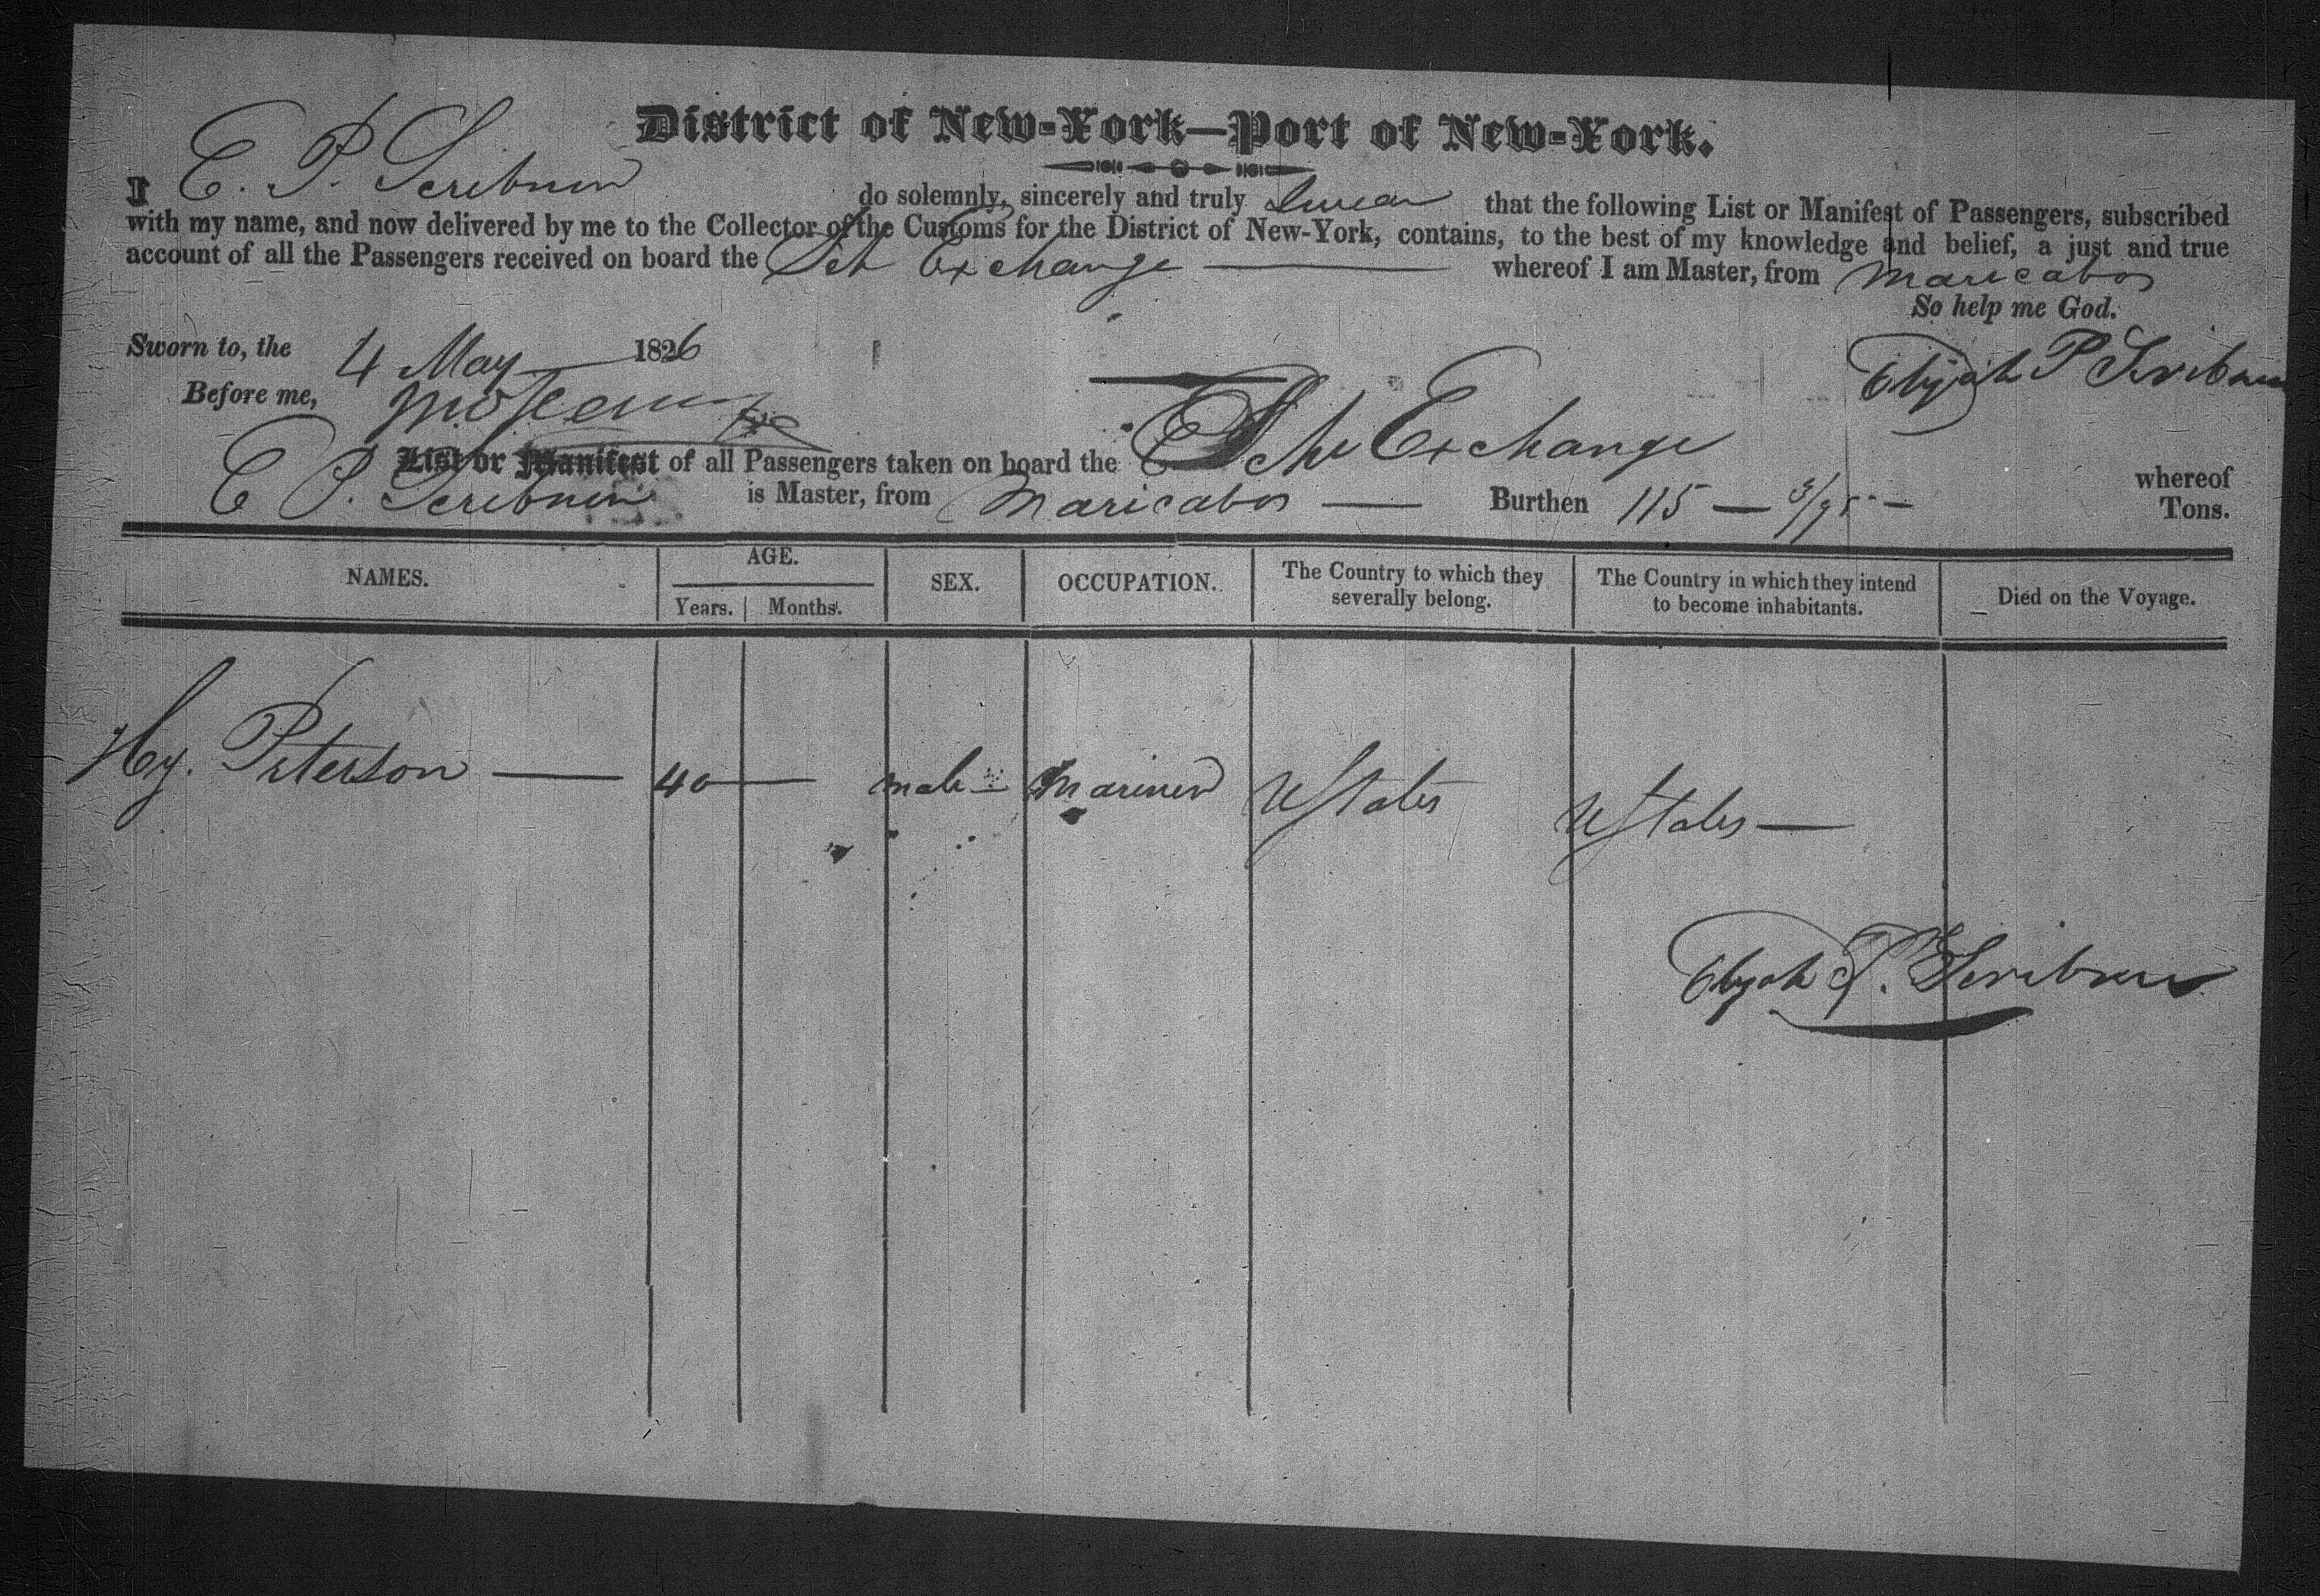 District of New-York—Port of New-York.
I E. P. Scribner do solemnly, sincerely and truly Swear that the following List or Manifest of Passengers, subscribed
with my name, and now delivered by me to the Collector of the Customs for the District of New-York, contains, to the best of my knowledge and belief, a just and true
account of all the Passengers received on board the Sch Exchange — whereof I am Master, from Maricabo
So help me God.
Sworn to, the 4 May 1826
Elijah P Scribner
Before me,
List or Manifest of all Passengers taken on board the Schr Exchange whereof
E P. Scribner is Master, from Maricabo — Burthen 115 — 3/95 — Tons.
NAMES. AGE. Years. Months. SEX. OCCUPATION. The Country to which they severally belong. The Country in which they intend to become inhabitants. Died on the Voyage.
Hy. Peterson — 40 — male — Mariner UStates UStates —
Elijah P. Scribner